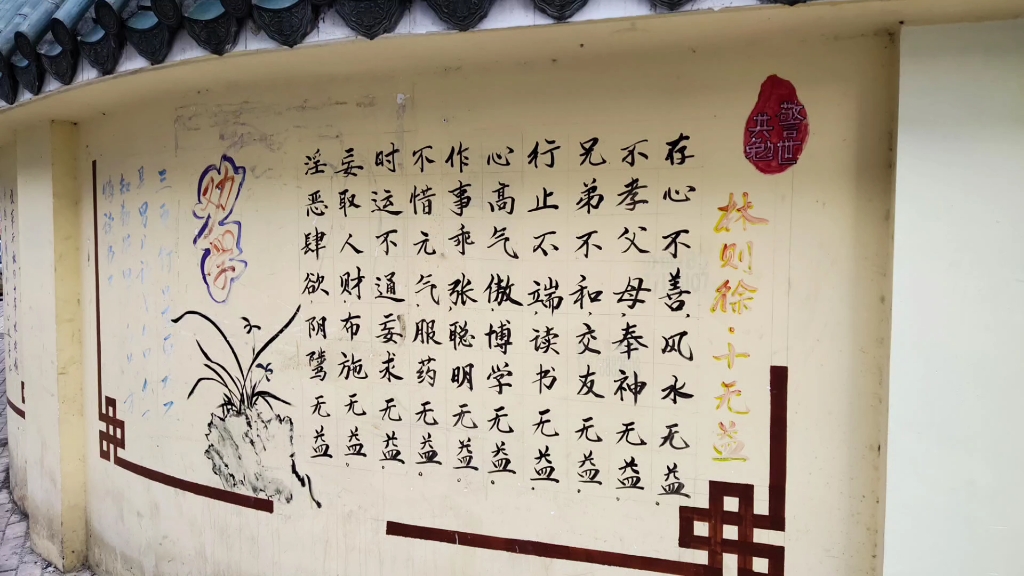 警世
共勉
林则徐·十无益
存心不善,风水无益。
不孝父母,奉神无益。
兄弟不和,交友无益。
行止不端,读书无益。
心高气傲,博学无益。
作事乖张,聪明无益。
不惜元气,服药无益。
时运不通,妄求无益。
妄取人财,布施无益。
淫恶肆欲,阴骘无益。
劝学